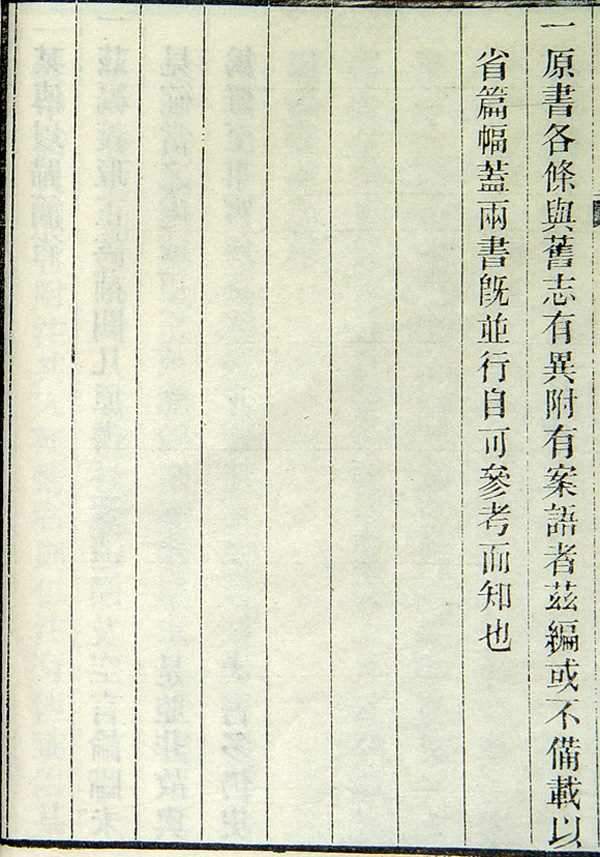 一原書各條與舊志有異附有案語者茲編或不備載以
省篇幅蓋兩書既並行自可參考而知也